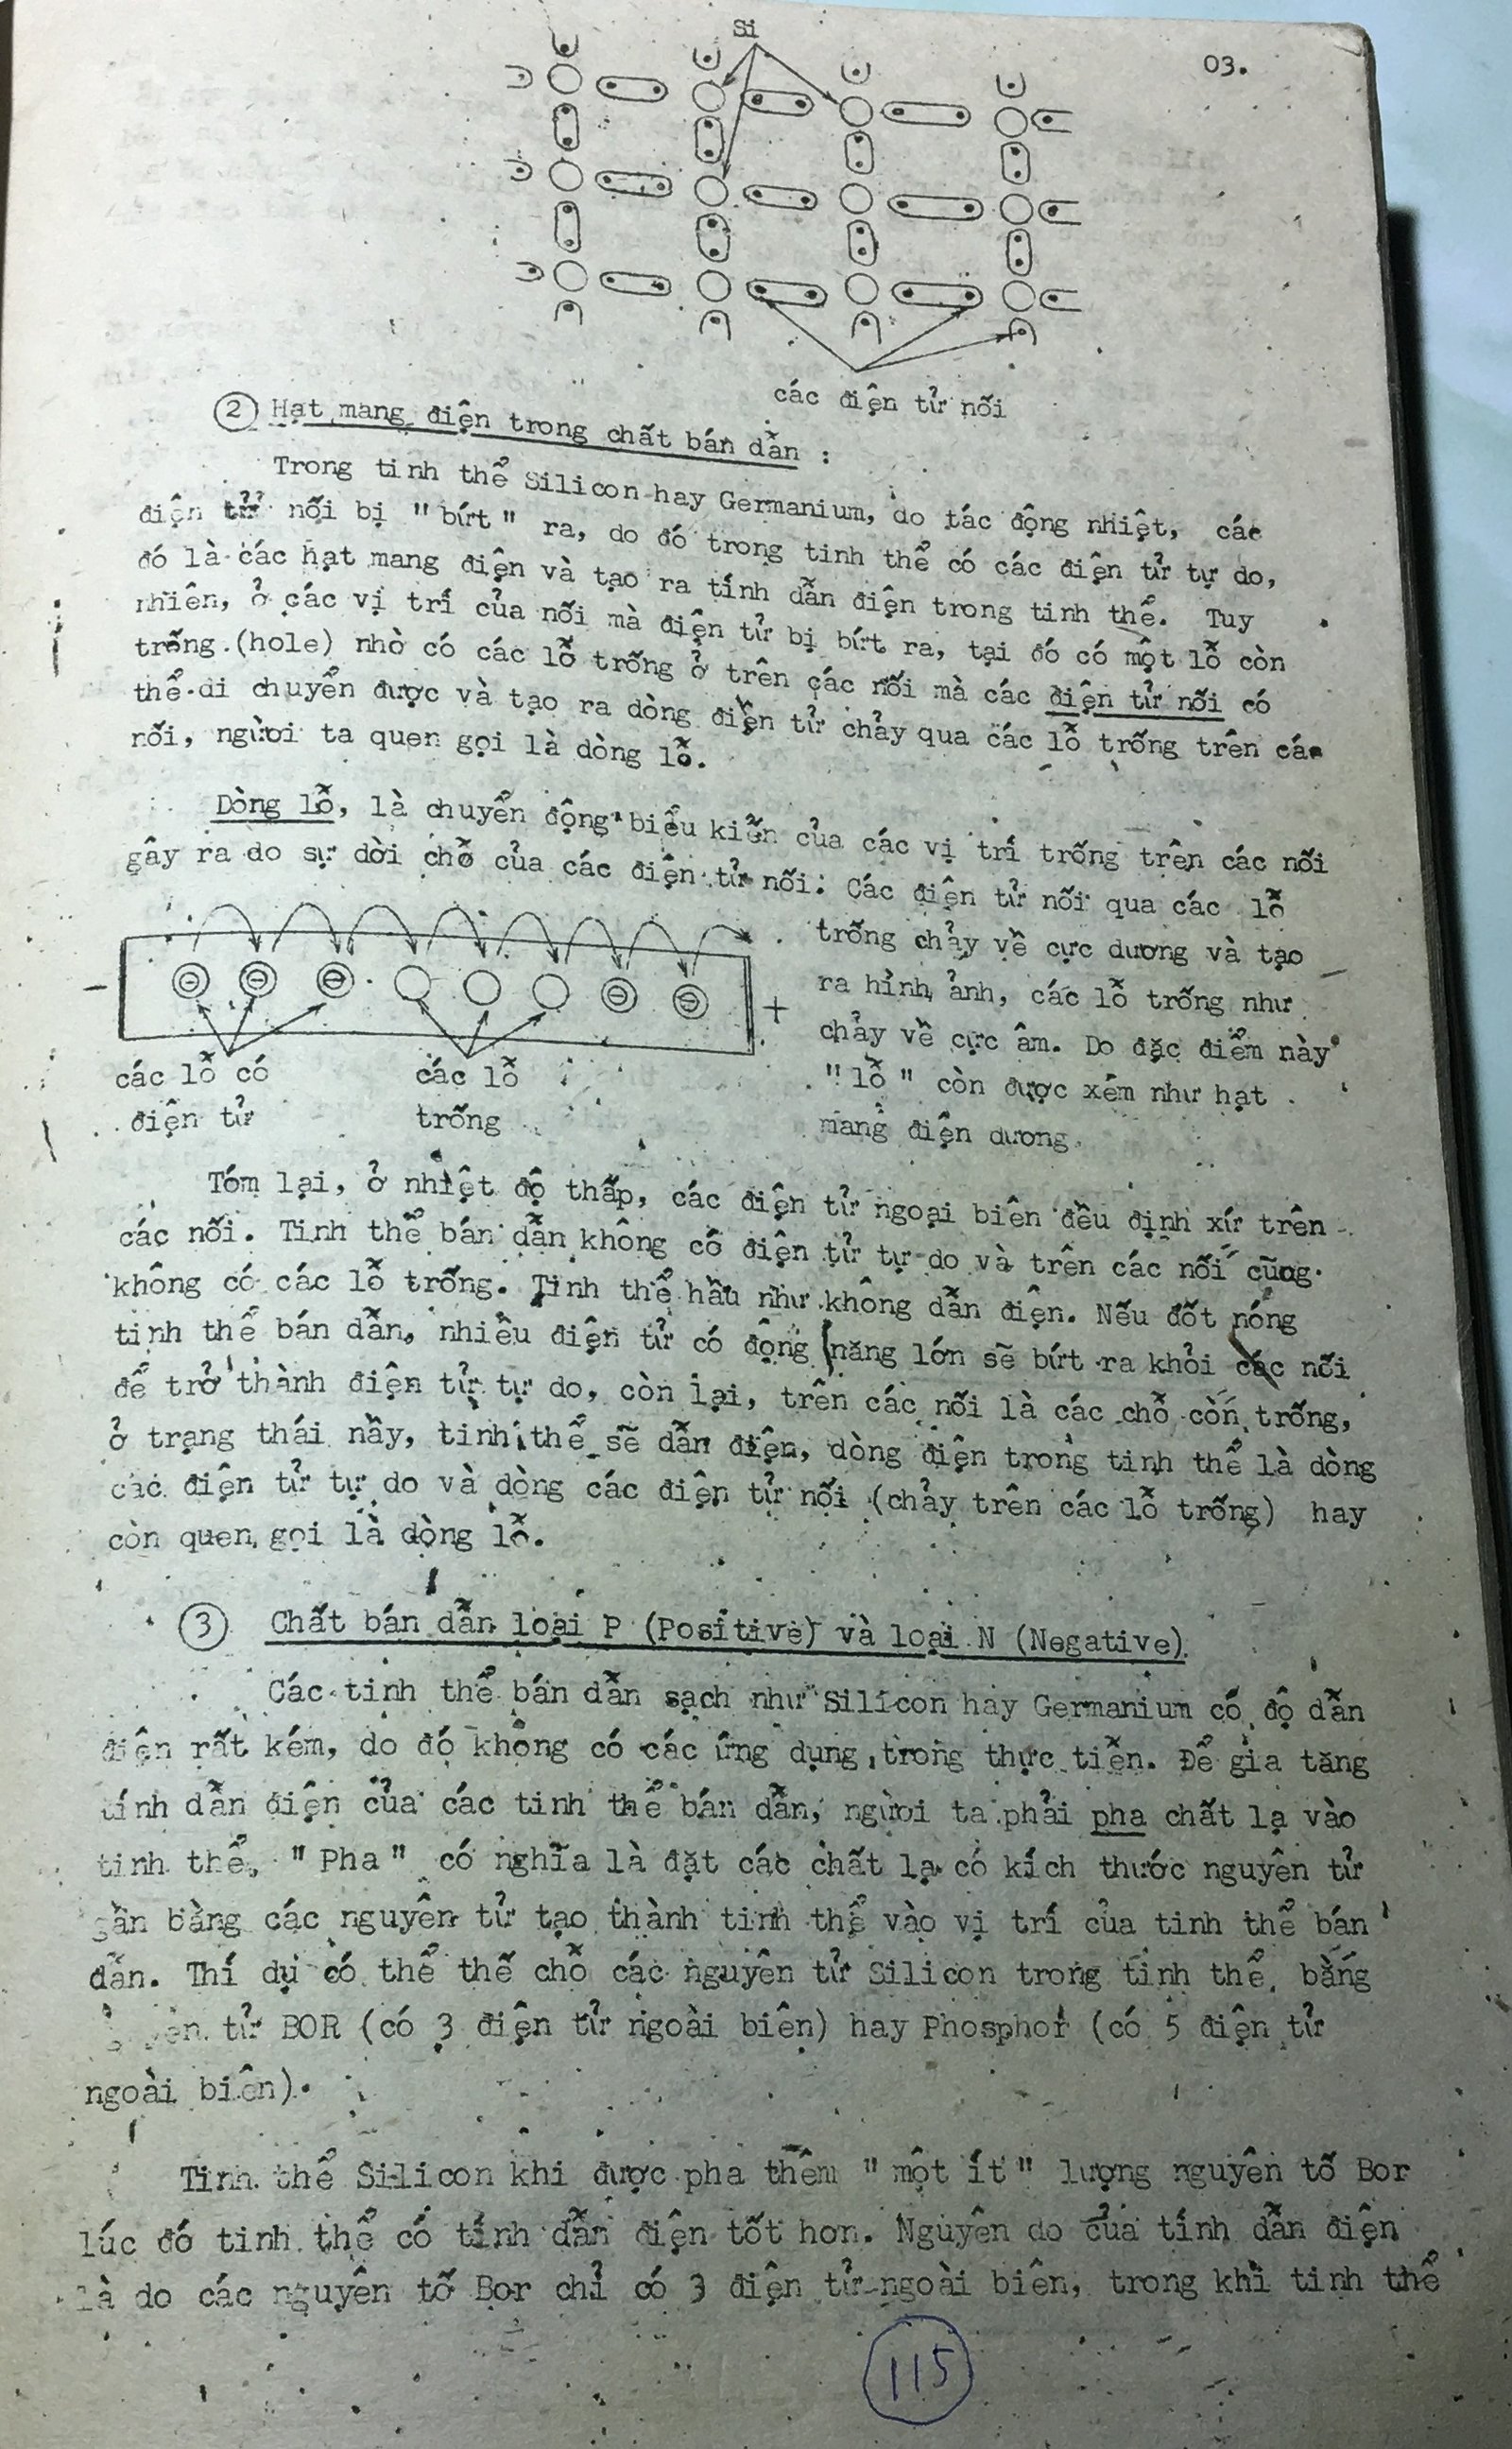 Si
03.
các điện tử nối
2 Hạt mang điện trong chất bán dẫn :
Trong tinh thể Silicon hay Germanium, do tác động nhiệt, các
điện tử nối bị "bứt" ra, do đó trong tinh thể có các điện tử tự do,
đó là các hạt mang điện và tạo ra tính dẫn điện trong tinh thể. Tuy
nhiên, ở các vị trí của nối mà điện tử bị bứt ra, tại đó có một lỗ còn
trống (hole) nhờ có các lỗ trống ở trên các nối mà các điện tử nối có
thể di chuyển được và tạo ra dòng điện tử chảy qua các lỗ trống trên các
nối, người ta quen gọi là dòng lỗ.
Dòng lỗ, là chuyển động biểu kiến của các vị trí trống trên các nối
gây ra do sự dời chỗ của các điện tử nối: Các điện tử nối qua các lỗ
trống chảy về cực dương và tạo
ra hình ảnh, các lỗ trống như
chảy về cực âm. Do đặc điểm này
"lỗ" còn được xém như hạt
mang điện dương.
- +
các lỗ có
điện tử
các lỗ
trống
Tóm lại, ở nhiệt độ thấp, các điện tử ngoại biên đều định xứ trên
các nối. Tinh thể bán dẫn không có điện tử tự do và trên các nối cũng
không có các lỗ trống. Tinh thể hầu như không dẫn điện. Nếu đốt nóng
tinh thể bán dẫn, nhiều điện tử có động năng lớn sẽ bứt ra khỏi các nối
để trở thành điện tử tự do, còn lại, trên các nối là các chỗ còn trống,
ở trạng thái nầy, tinh thể sẽ dẫn điện, dòng điện trong tinh thể là dòng
các điện tử tự do và dòng các điện tử nối (chảy trên các lỗ trống) hay
còn quen gọi là dòng lỗ.
3 Chất bán dẫn loại P (Positive) và loại N (Negative)
Các tinh thể bán dẫn sạch như Silicon hay Germanium có độ dẫn
điện rất kém, do đó không có các ứng dụng trong thực tiễn. Để gia tăng
tính dẫn điện của các tinh thể bán dẫn, người ta phải pha chất lạ vào
tinh thể. "Pha" có nghĩa là đặt các chất lạ có kích thước nguyên tử
gần bằng các nguyên tử tạo thành tinh thể vào vị trí của tinh thể bán
dẫn. Thí dụ có thể thế chỗ các nguyên tử Silicon trong tinh thể, bằng
tử BOR (có 3 điện tử ngoài biên) hay Phosphor (có 5 điện tử
ngoài biên).
Tinh thể Silicon khi được pha thêm "một ít" lượng nguyên tố Bor
lúc đó tinh thể có tính dẫn điện tốt hơn. Nguyên do của tính dẫn điện
là do các nguyên tố Bor chỉ có 3 điện tử ngoài biên, trong khi tinh thể
115